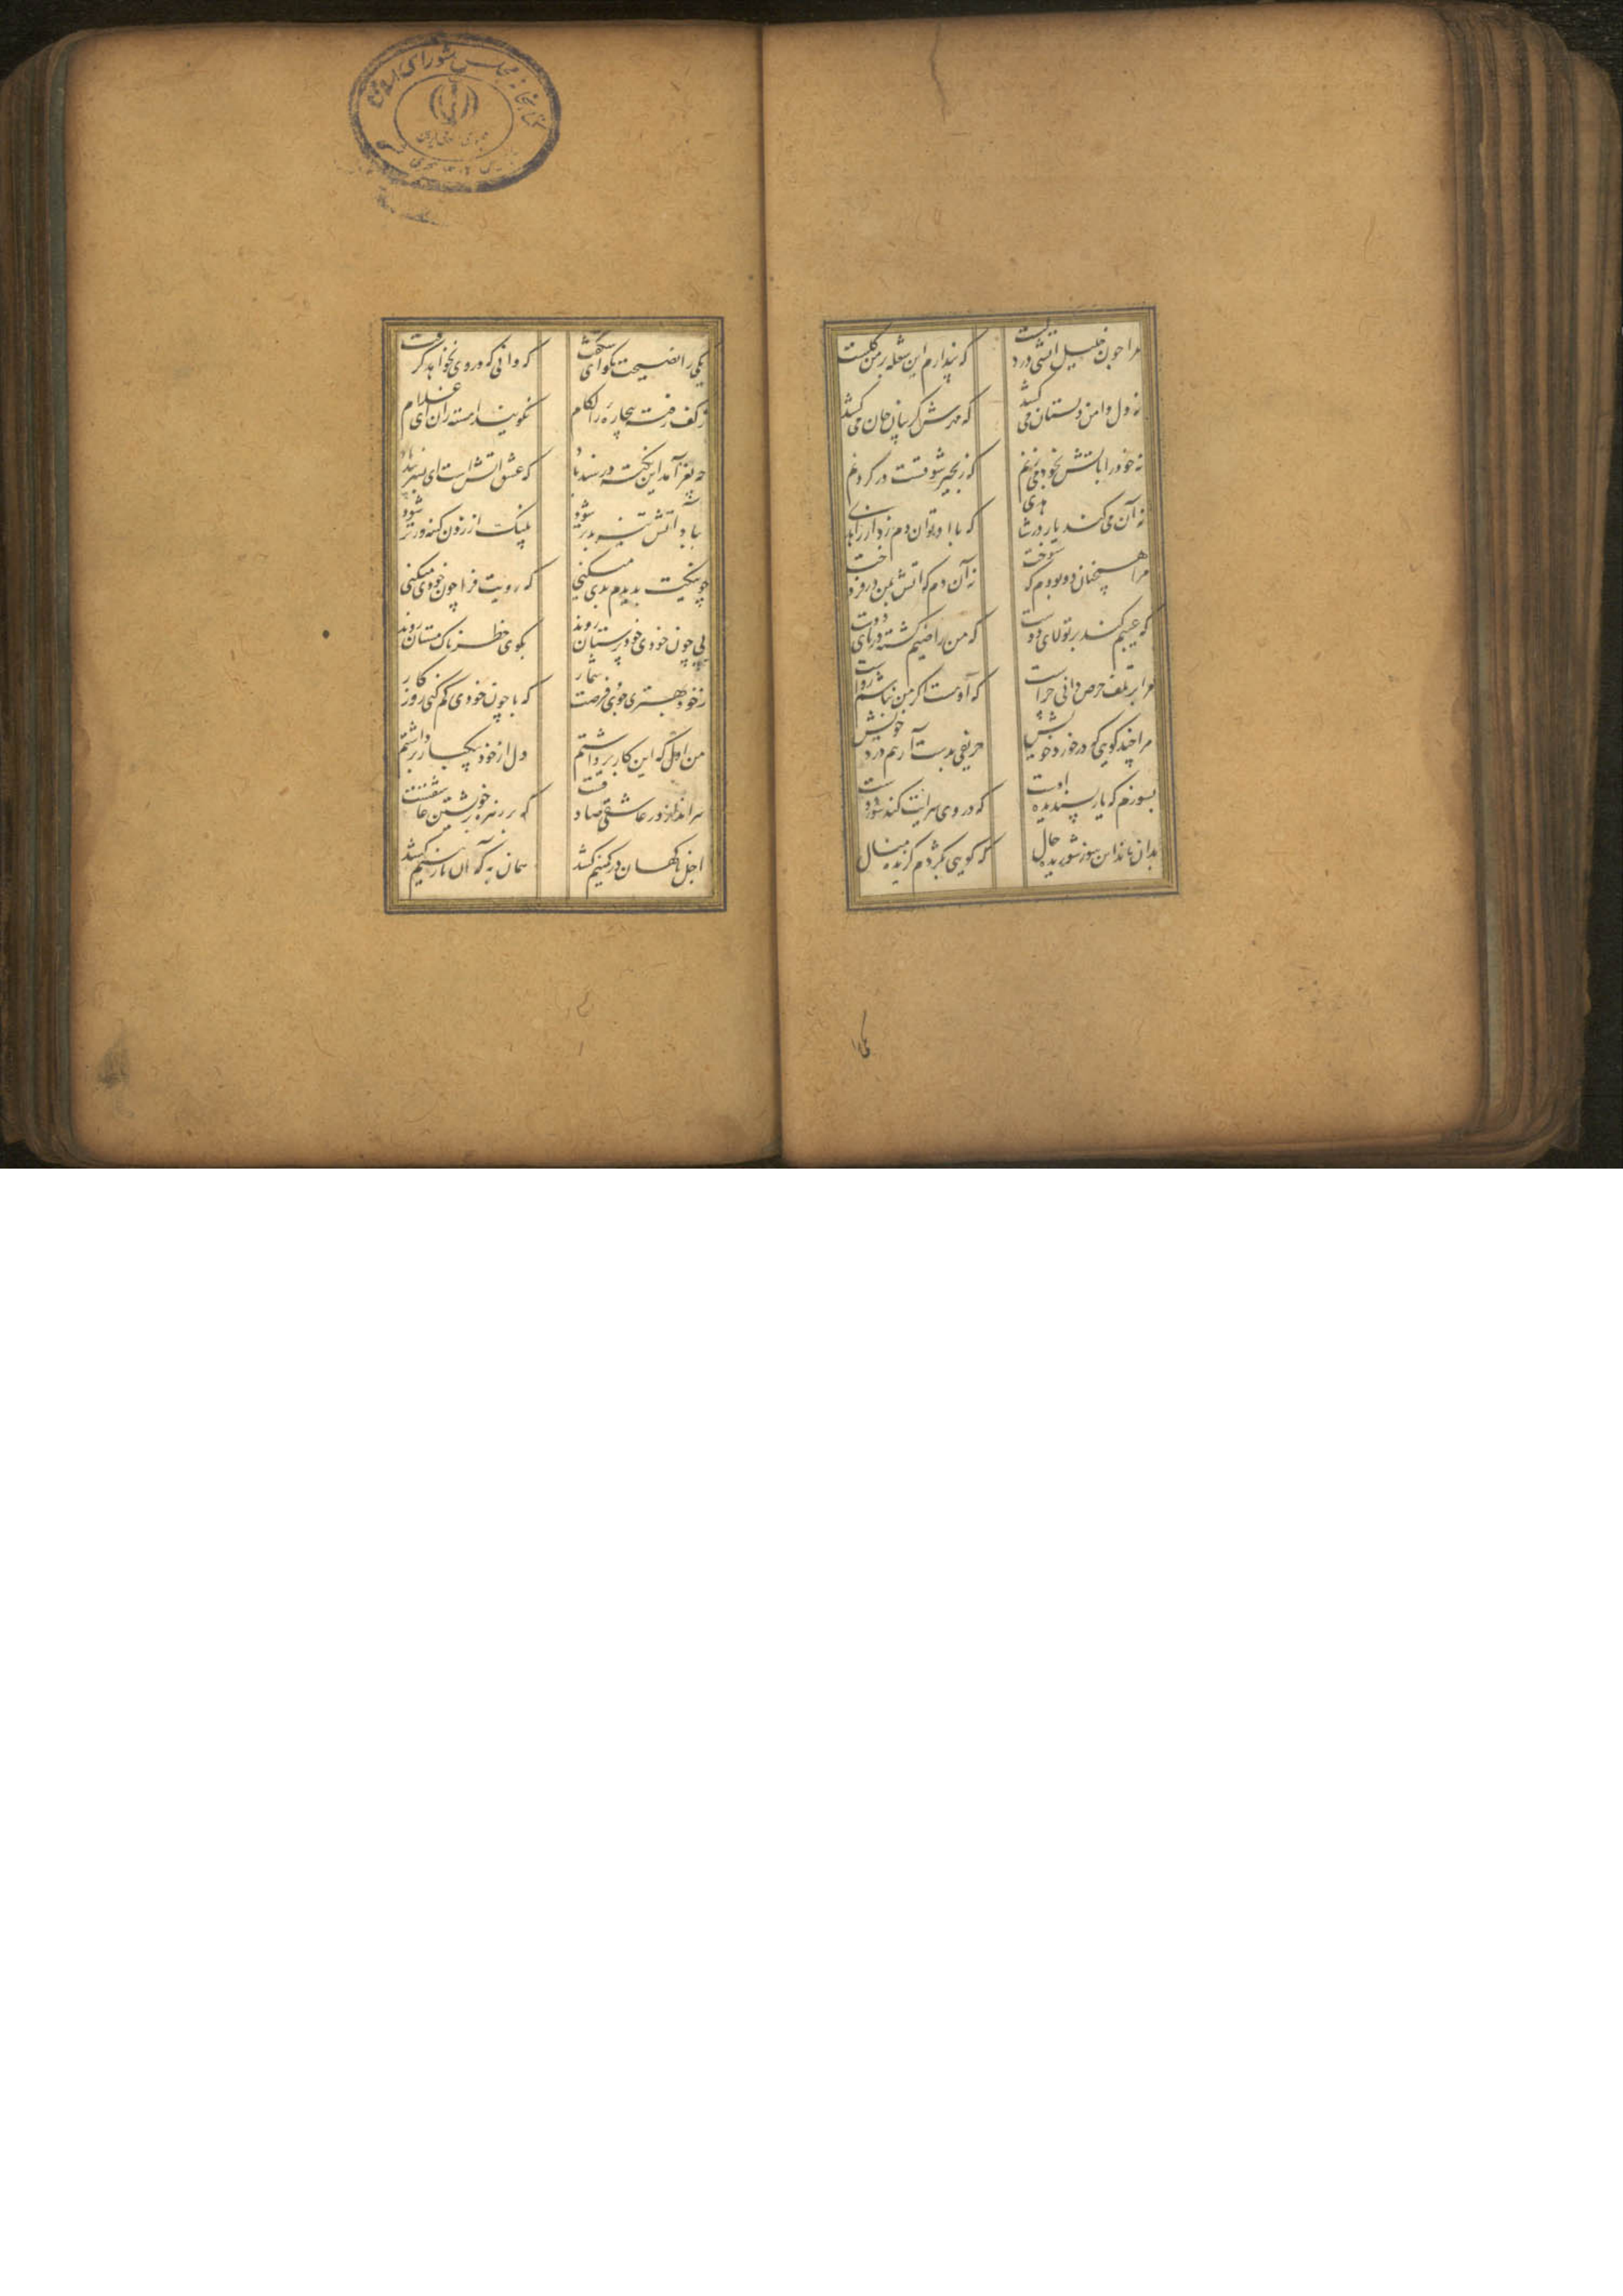 مرا چون خلیل آتشی در دلست که پندارم این شعله بر من گلست
نه دل دامن دلستان می کشد که مهرش گریبان جان می کشد
نه خود را بآتش بخود می زنم که زنجیر شوقست در گردنم
نه آن می کند یار در شاهدی که با او توان دم زد از زاهدی
مرا همچنان دور بودم که سوخت نه آن دم که آتش بمن در فروخت
که عیبم کند بر تولای دوست که من راضیم کشته در پای دوست
مرا بر تلف حرص دانی چراست که اوست اگر من نباشم رواست
مرا چند گویی که در خورد خویش حریفی بدست آر هم درد خویش
بسوزم که یار پسندیده اوست که در وی سرایت کند سوز دوست
بدان ماند این سوز شوریده حال که گویی بکژدم گزیده منال
یکی را نصیحت مگو ای شگفت که دانی که در وی نخواهد گرفت
ز کف رفته بیچاره را لگام نگویند آهسته ران ای غلام
چه نغز آمد این نکته در سندباد که عشق آتش است ای پسر پند باد
بباد آتش تیز برتر شود پلنگ از زدن کینه ورتر شود
چو نیکت بدیدم بدی میکنی که رویت فرا چون خودی میکنی
پی چون خودی خودپرستان روند بکوی خطرناک مستان روند
ز خود بهتری جوی فرصت شمار که با چون خودی گم کنی روزگار
من اول که این کار برداشتم دل از خود بیکبار برداشتم
سر انداز در عاشقی صادقست که بر زهره بر خویشتن عاشقست
اجل ناگهان در کمینم کشد همان به که آن نازنینم کشد
کتابخانه مجلس شورای اسلامی